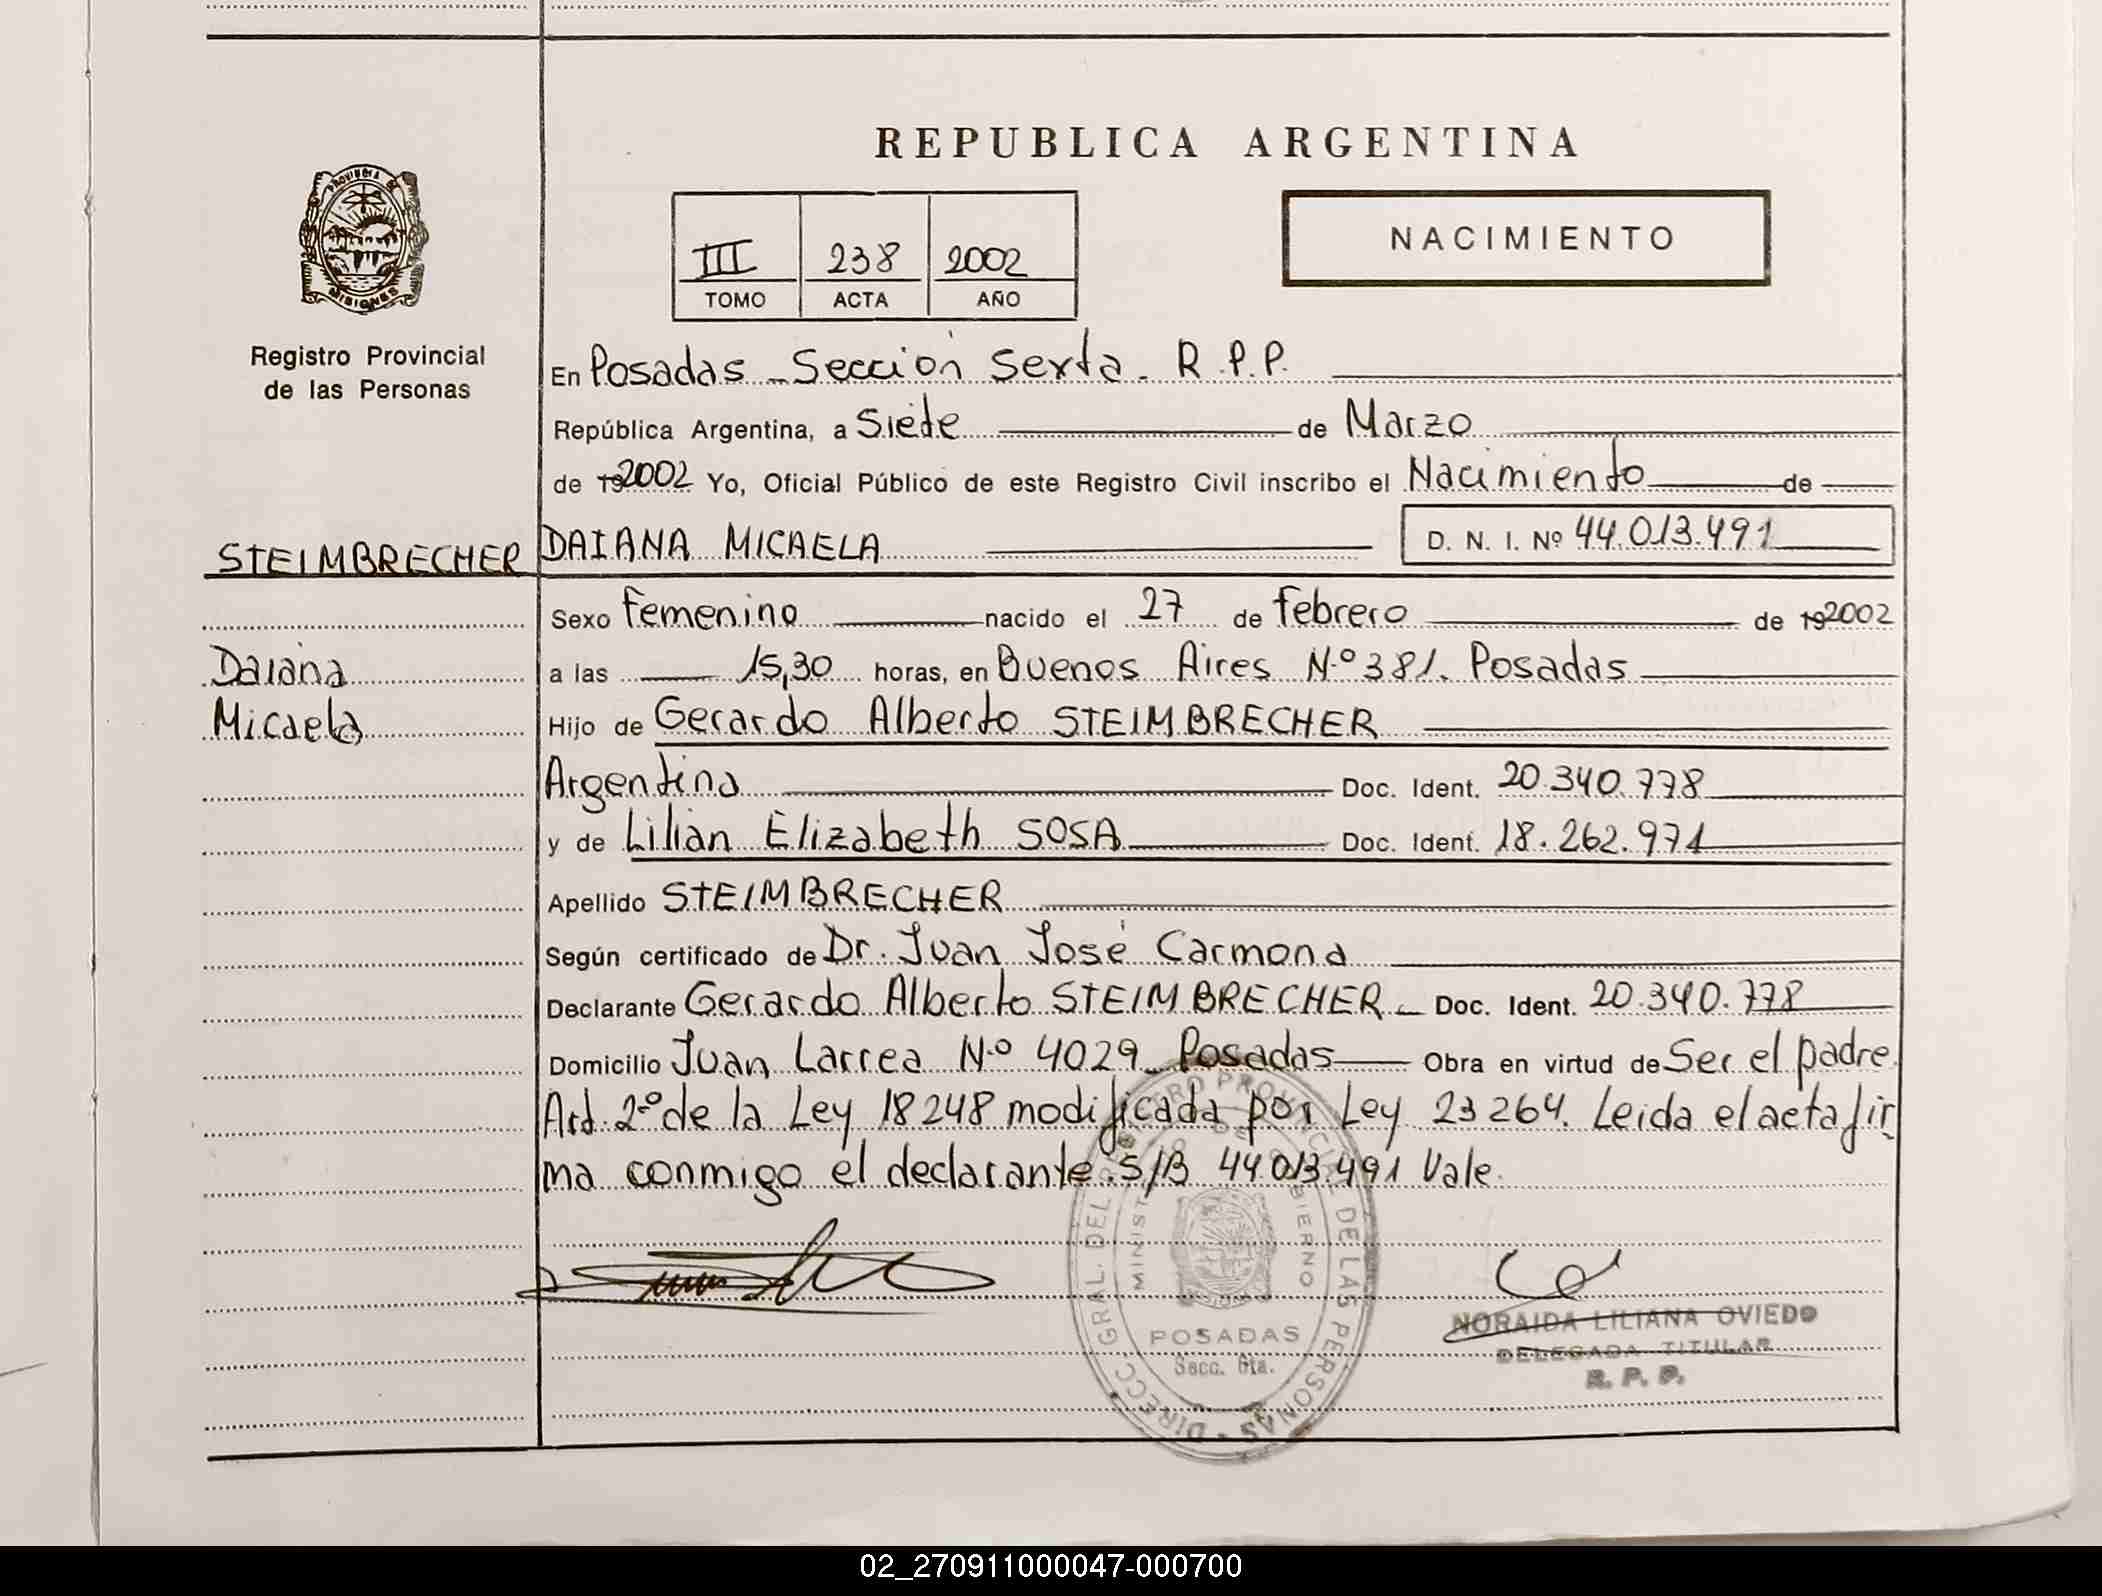 REPUBLICA ARGENTINA
PROVINCIA DE
MISIONES
Registro Provincial
de las Personas
III 238 2002
TOMO ACTA AÑO
NACIMIENTO
En Posadas - Sección Sexta. R.P.P.
República Argentina, a Siete de Marzo
de 192002 Yo, Oficial Público de este Registro Civil inscribo el Nacimiento de
STEIMBRECHER DAIANA MICAELA D. N. I. Nº 44.013.491
Sexo Femenino nacido el 27 de Febrero de 192002
Daiana a las 15,30 horas, en Buenos Aires N.º 381. Posadas
Micaela Hijo de Gerardo Alberto STEIMBRECHER
Argentina Doc. Ident. 20.340.778
y de Lilian Elizabeth SOSA Doc. Ident. 18.262.971
Apellido STEIMBRECHER
Según certificado de Dr. Juan José Carmona
Declarante Gerardo Alberto STEIMBRECHER - Doc. Ident. 20.340.778
Domicilio Juan Larrea N.º 4029 Posadas Obra en virtud de Ser el padre
Art. 2º de la Ley 18248 modificada por Ley 23264. Leida el acta fir
ma conmigo el declarante. S/B 44.013.491 Vale.
DIRECC. GRAL. DEL REGISTRO PROVINCIAL DE LAS PERSONAS
MINISTERIO DE GOBIERNO
POSADAS
Secc. 6ta.
NORAIDA LILIANA OVIEDO
DELEGADA TITULAR
R. P. P.
02_270911000047-000700